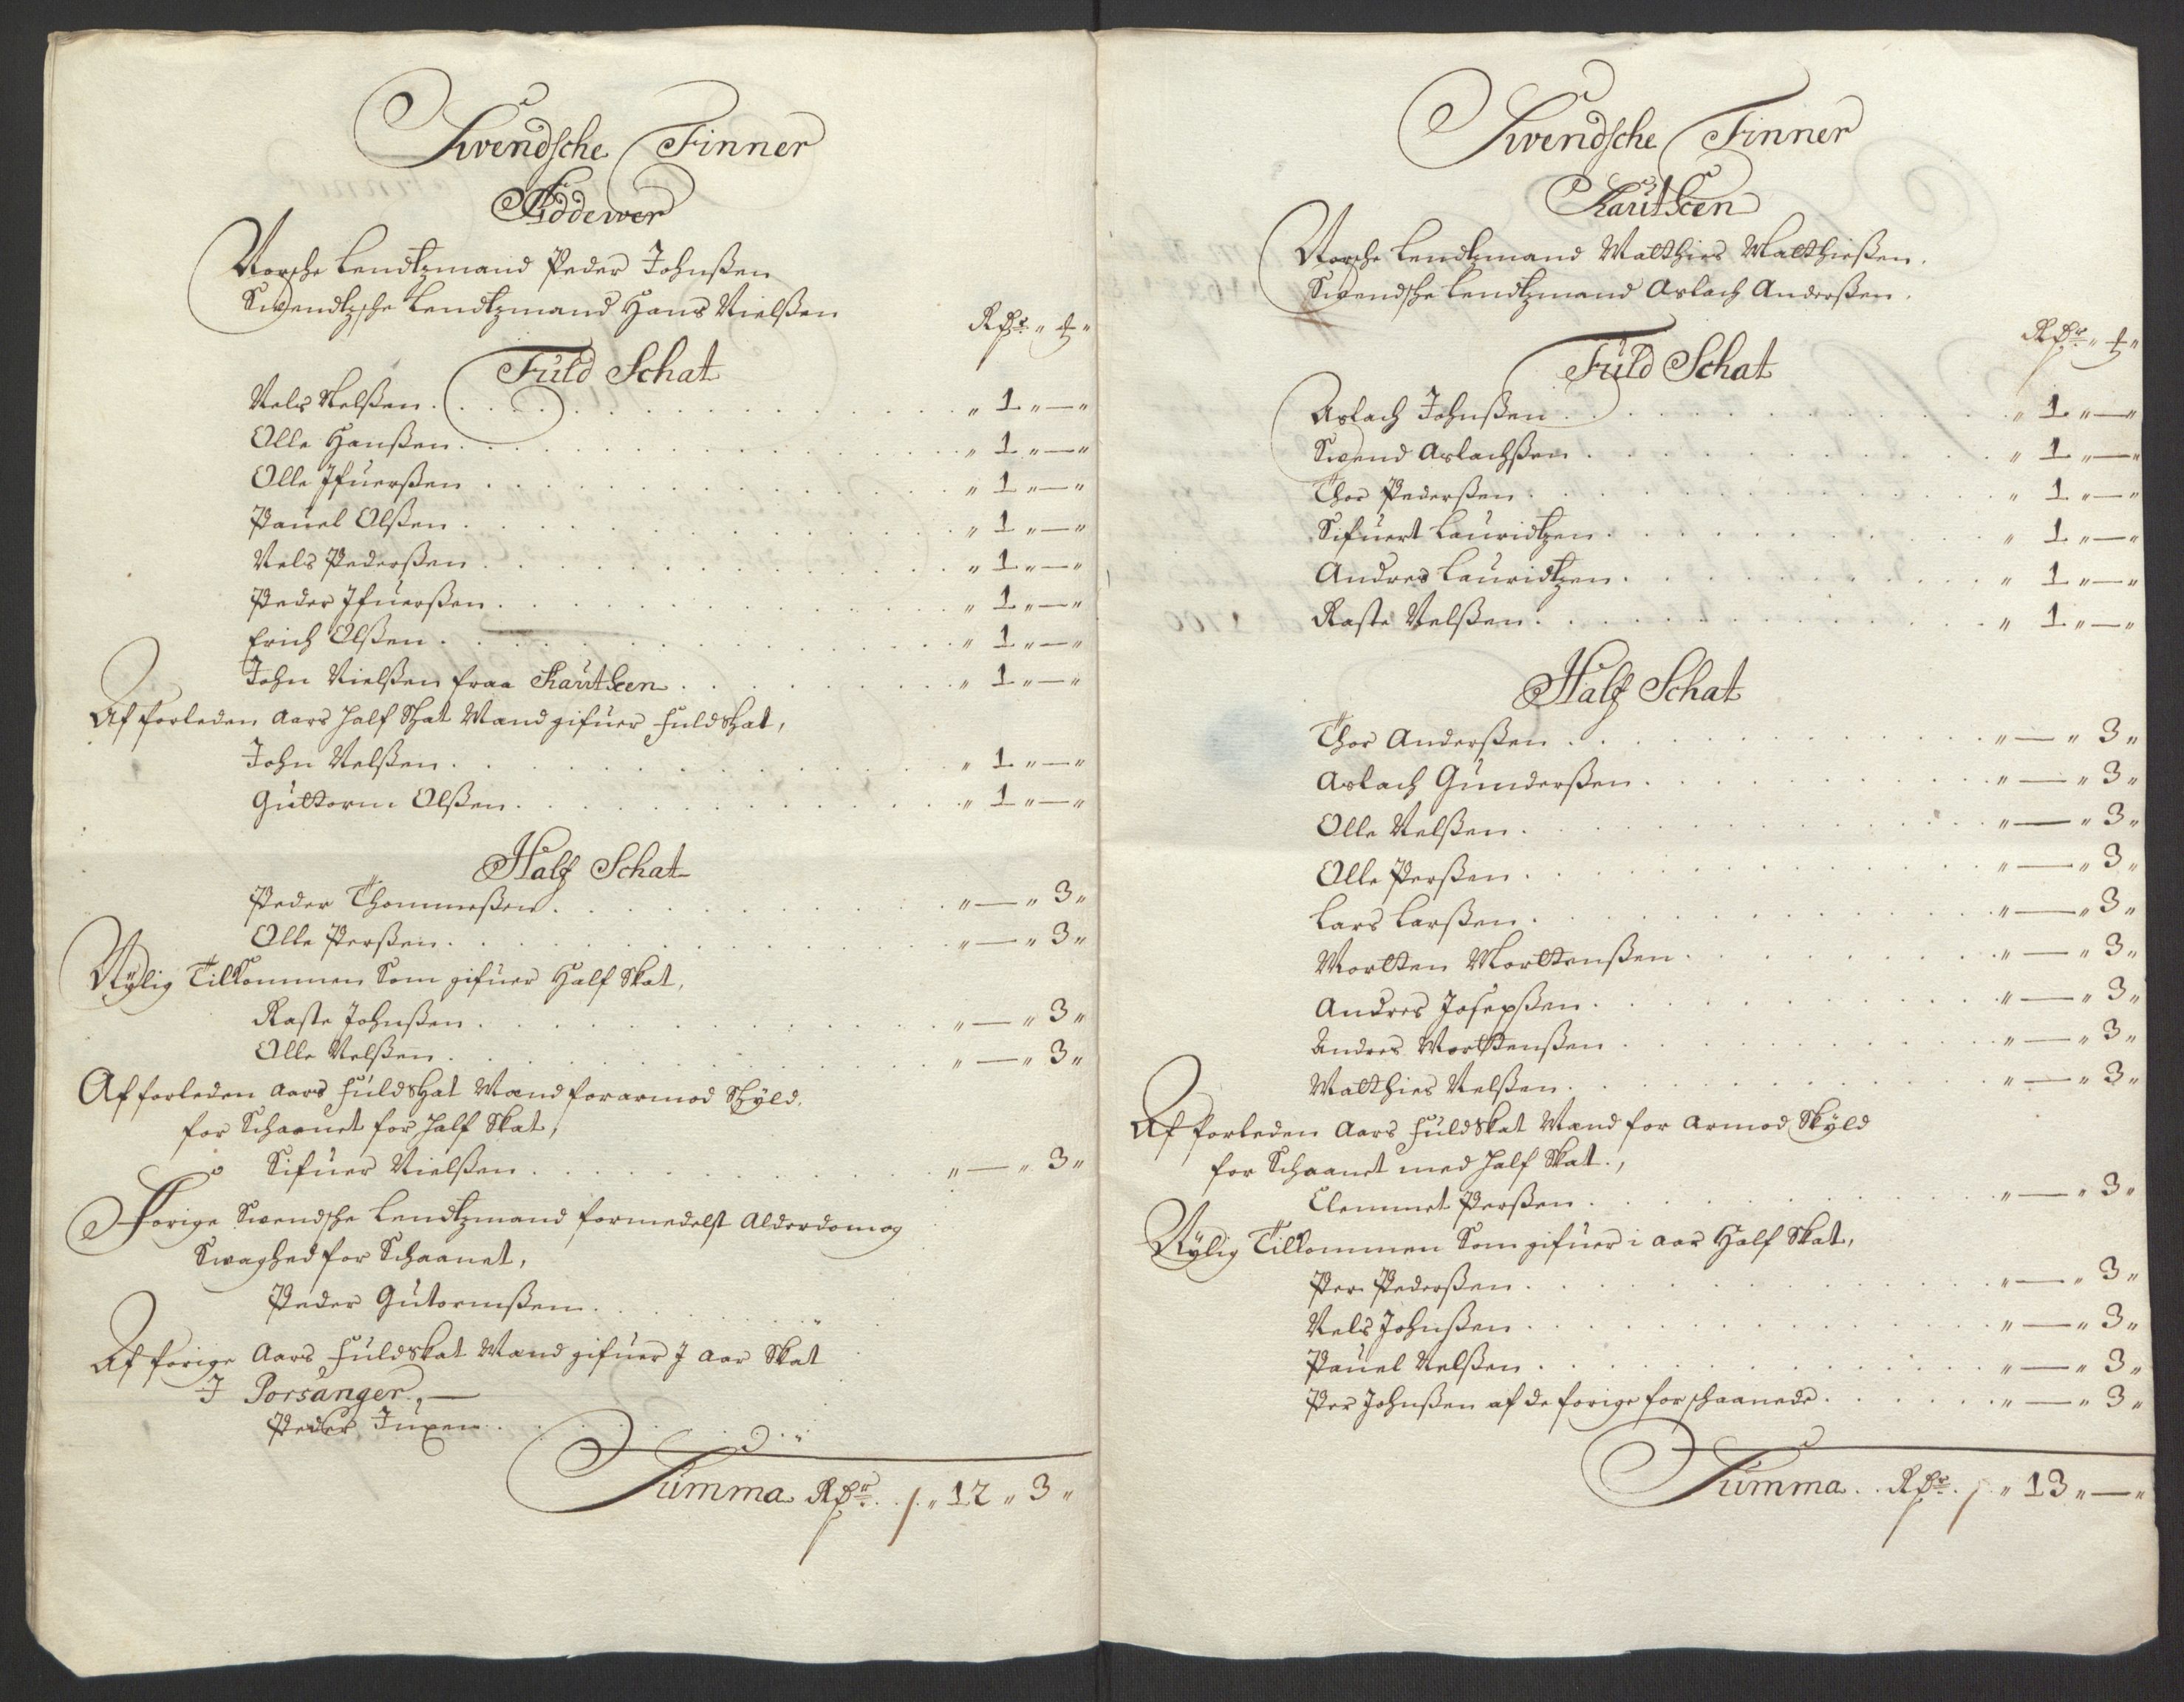 Swendsche Finner
Afdewer
Norsche Lendtzmand Peder Johnßen
Swendtzsche Lendtzmand Hans Nielßen
Rdr. " ℔ "
Fuld Schat
Nels Nelßen . . . " 1 " — "
Olle Hanßen . . . " 1 " — "
Olle Ifuerßen . . . " 1 " — "
Pauel Olßen . . . " 1 " — "
Nels Pederßen . . . " 1 " — "
Peder Ifuerßen . . . " 1 " — "
Erich Olßen . . . " 1 " — "
John Nielßen fraa Kautkeen . . . " 1 " — "
Af forleden aars half Skat Mand gifuer fuld skat,
John Nelßen . . . " 1 " — "
Guttorm Olßen . . . " 1 " — "
Half Schat
Peder Thommeßen . . . " — " 3 "
Olle Perßen . . . " — " 3 "
Nÿlig Tilkommen som gifuer Half Skat,
Raste Johnßen . . . " — " 3 "
Olle Nelßen . . . " — " 3 "
Af forleden aars fuld skat Mænd for armod Skÿld
for Schaanet for half Skat,
Sifuer Nielßen . . . " — " 3 "
Forige Swendsche Lendtzmand formedelst Alderdom og
Swaghed for Schaanet,
Peder Gutormßen . . . "
Af forige Aars fuldskat Mænd gifuer J aar Skat
J Porsanger, —
Peder Juxen . . . "
Summa Rdr. . " 12 " 3 "
Swendsche Finner
Kautkeen
Norsche Lendtzmand Matthies Matthießen.
Swendsche Lendtzmand Aslach Anderßen.
Rdr. " ℔ "
Fuld Schat
Aslach Johnßen . . . " 1 " — "
Swend Aslachßen . . . " 1 " — "
Thor Pederßen . . . " 1 " — "
Sifuert Lauridtzen . . . " 1 " — "
Andres Lauridtzen . . . " 1 " — "
Raste Nelßen . . . " 1 " — "
Half Schat
Thor Anderßen . . . " — " 3 "
Aslach Gunderßen . . . " — " 3 "
Olle Nelßen . . . " — " 3 "
Olle Perßen . . . " — " 3 "
Lars Larßen . . . " — " 3 "
Mortten Morttenßen . . . " — " 3 "
Andres Josepßen . . . " — " 3 "
Andres Morttenßen . . . " — " 3 "
Matthies Nelßen . . . " — " 3 "
Af forleden Aars fuldskat Mænd for Armod Skÿld
for Schaanet med half Skat,
Clemmet Perßen . . . " — " 3 "
Nÿlig Tilkommen Som gifuer i aar Half Skat,
Per Pederßen . . . " — " 3 "
Nels Johnßen . . . " — " 3 "
Pauel Nelßen . . . " — " 3 "
Per Johnßen af de forige forschaanede . . . " — " 3 "
Summa . . Rdr. . " 13 " — "